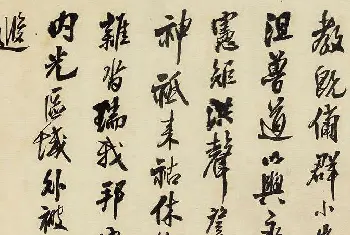 教既備群小
沮善道以興永
憲矩洪聲登
神祇来祜休
雜沓瑞我邦
内光區域外被
遐